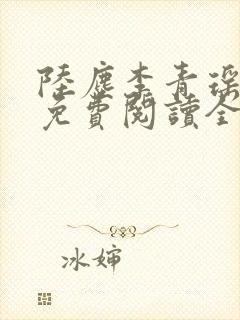 陸塵李青瑤
免費閱讀全
冰婶